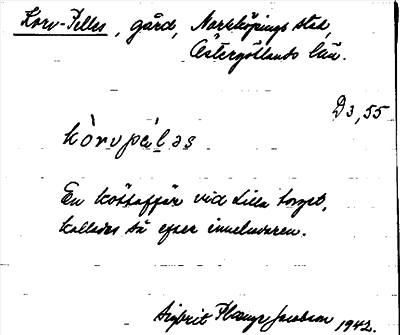 Korv-Pelles, gård, Norrköpings stad,
Östergötlands län.
D3,55
kòrvpæ̀l̥əs
En köttaffär vid Lilla torget,
kallades så efter innehavaren.
Sigbrit Plænge Jacobson 1942.